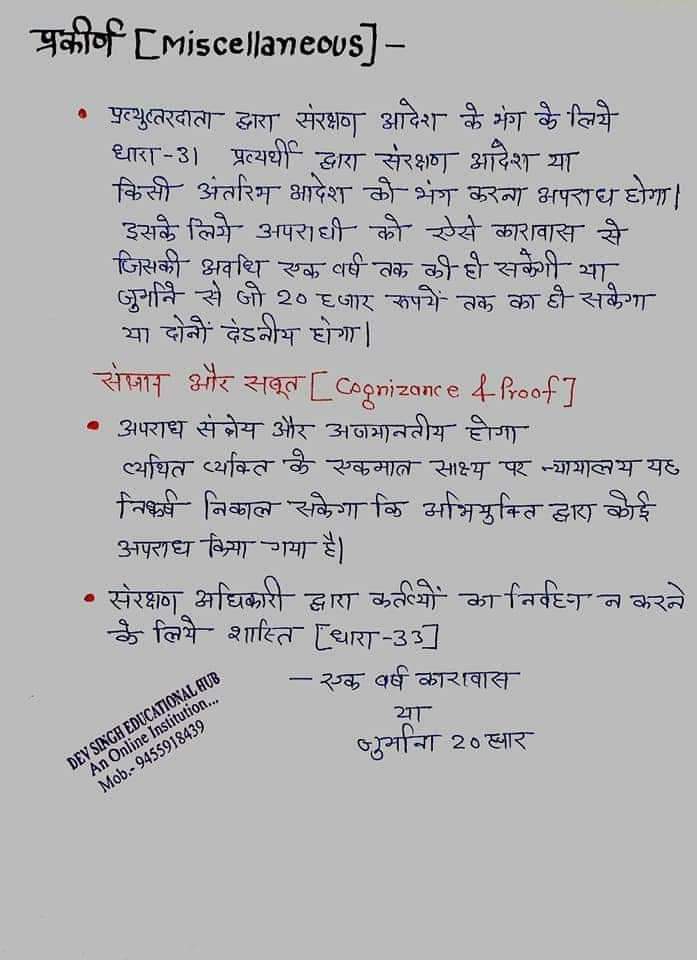 प्रकीर्ण [Miscellaneous] –
• प्रत्युत्तरदाता द्वारा संरक्षण आदेश के भंग के लिये
धारा -31 प्रत्यर्थी द्वारा संरक्षण आदेश या
किसी अंतरिम आदेश को भंग करना अपराध होगा।
इसके लिये अपराधी को ऐसे कारावास से
जिसकी अवधि एक वर्ष तक की हो सकेगी या
जुर्माने से जो 20 हजार रूपयें तक का हो सकेगा
या दोनों दंडनीय होगा।
संज्ञान और सबूत [Cognizance & Proof]
• अपराध संज्ञेय और अजमानतीय होगा
व्यथित व्यक्ति के एकमात्र साक्ष्य पर न्यायालय यह
निष्कर्ष निकाल सकेगा कि अभियुक्ति द्वारा कोई
अपराध किया गया है।
• संरक्षण अधिकारी द्वारा कर्तव्यों का निर्वहन न करने
के लिये शास्ति [धारा -33]
– एक वर्ष कारावास
या
जुर्माना 20
DEV SINGH EDUCATIONAL HUB
An Online Institution...
Mob.- 9455918439